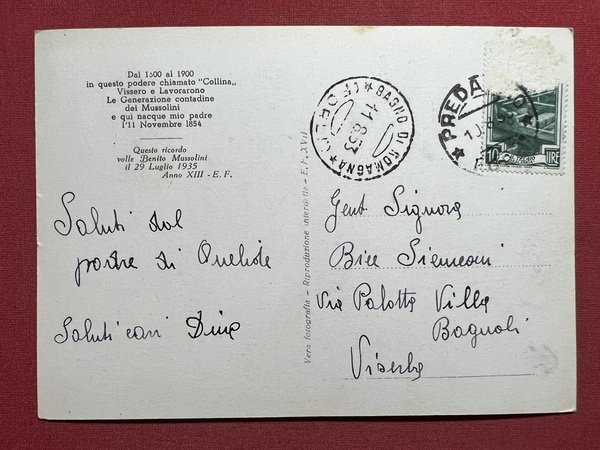 Dal 1500 al 1900
in questo podere chiamato "Collina„
Vissero e Lavorarono
Le Generazione contadine
dei Mussolini
e qui nacque mio padre
l'11 Novembre 1854
Questo ricordo
volle Benito Mussolini
il 29 Luglio 1935
Anno XIII - E. F.
Saluti dal
di
Saluti cari Dina
Vera fotografia - Riproduzione interdetta - E. F. XVII
BAGNO DI ROMAGNA
11.8.53
PREDAPPIO
10
LIRE
Gent Signora
Bice
Via Palotta Villa
Bagnoli
Viserba